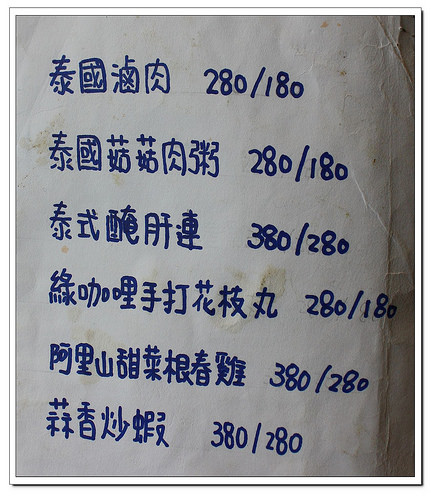 泰國滷肉 280/180
泰國菇菇肉粥 280/180
泰式醃肝連 380/280
綠咖哩手打花枝丸 280/180
阿里山甜菜根春雞 380/280
蒜香炒蝦 380/280